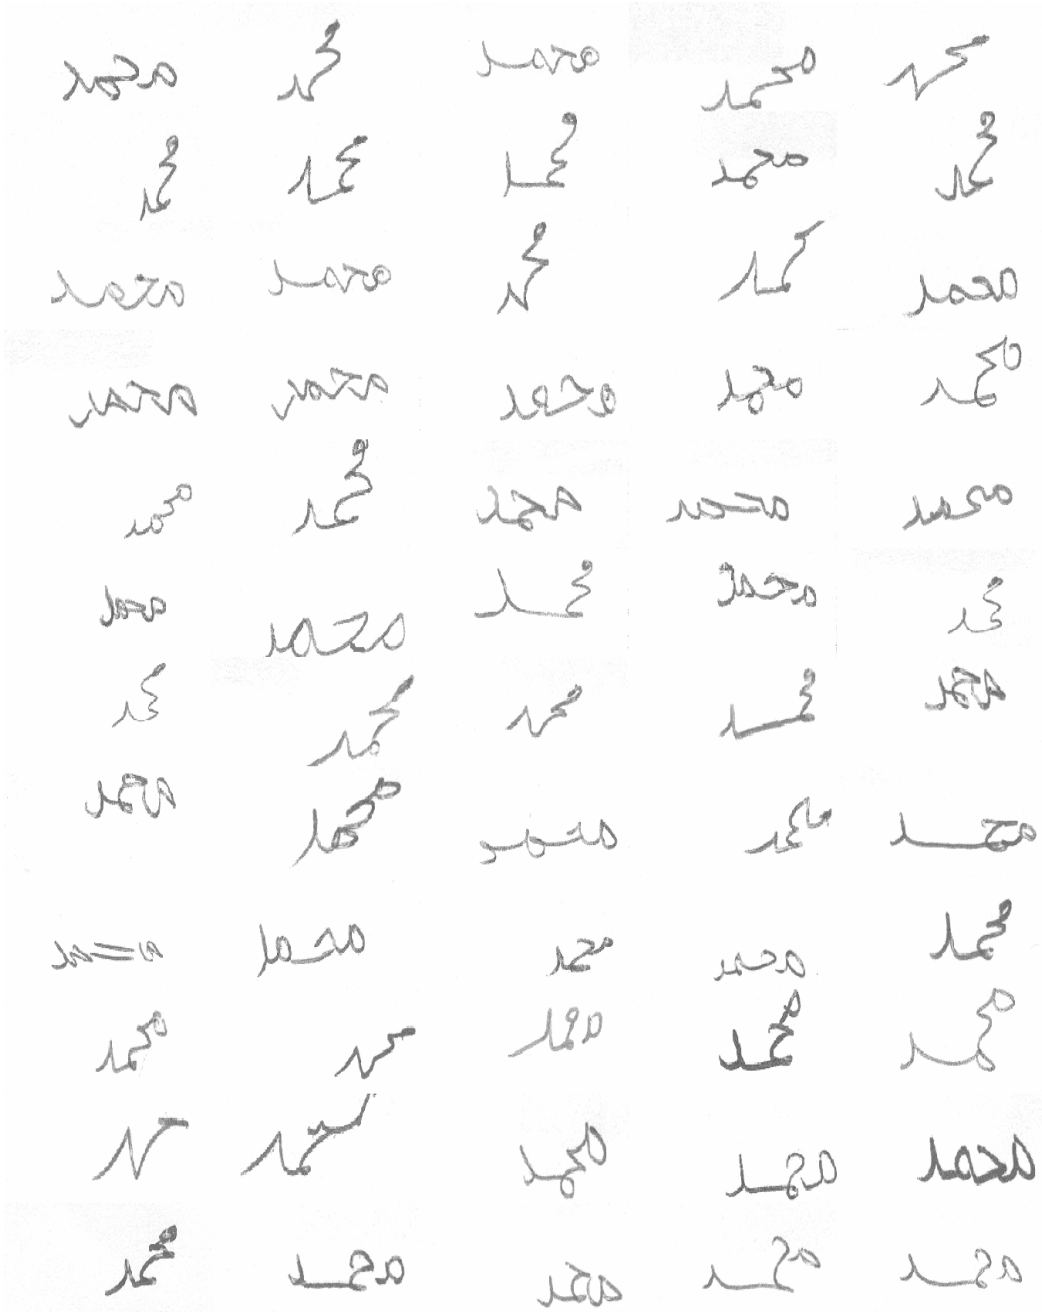 محمد محمد محمد محمد محمد
محمد محمد محمد محمد محمد
محمد محمد محمد محمد محمد
محمد محمد محمد محمد محمد
محمد محمد محمد محمد محمد
محمد محمد محمد محمد محمد
محمد محمد محمد محمد محمد
محمد محمد محمد محمد محمد
محمد محمد محمد محمد محمد
محمد محمد محمد محمد محمد
محمد محمد محمد محمد محمد
محمد محمد محمد محمد محمد